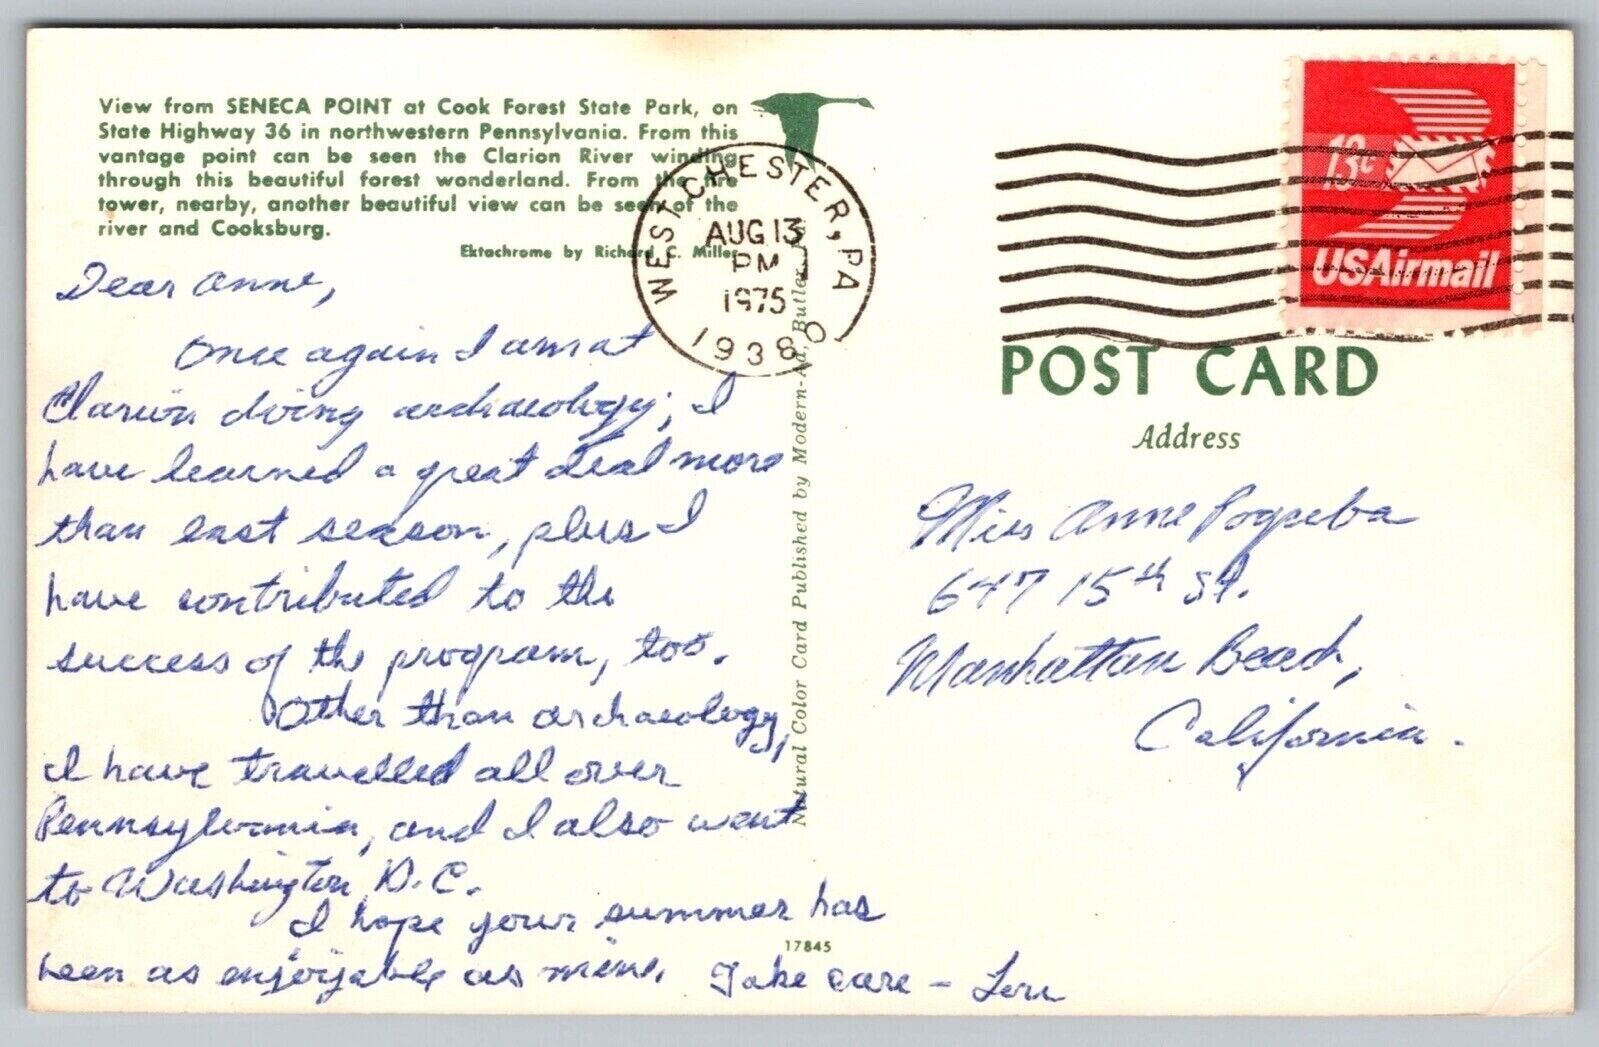 View from SENECA POINT at Cook Forest State Park, on
State Highway 36 in northwestern Pennsylvania. From this
vantage point can be seen the Clarion River winding
through this beautiful forest wonderland. From the fire
tower, nearby, another beautiful view can be seen of the
river and Cooksburg.
Ektachrome by Richard C. Miller
Dear Anne,
Once again I am at
Clarion doing archaeology; I
have learned a great deal more
than last season, plus I
have contributed to the
success of the program, too.
Other than archaeology,
I have travelled all over
Pennsylvania, and I also went
to Washington D.C.
I hope your summer has
been as enjoyable as mine. Take care – Lori
17845
Natural Color Card Published by Modern-Ad, Butler,
WEST CHESTER, PA
AUG 13
PM
1975
19380
13c
USAirmail
POST CARD
Address
Miss Anne Pogueba
647 15th St.
Manhattan Beach,
California.